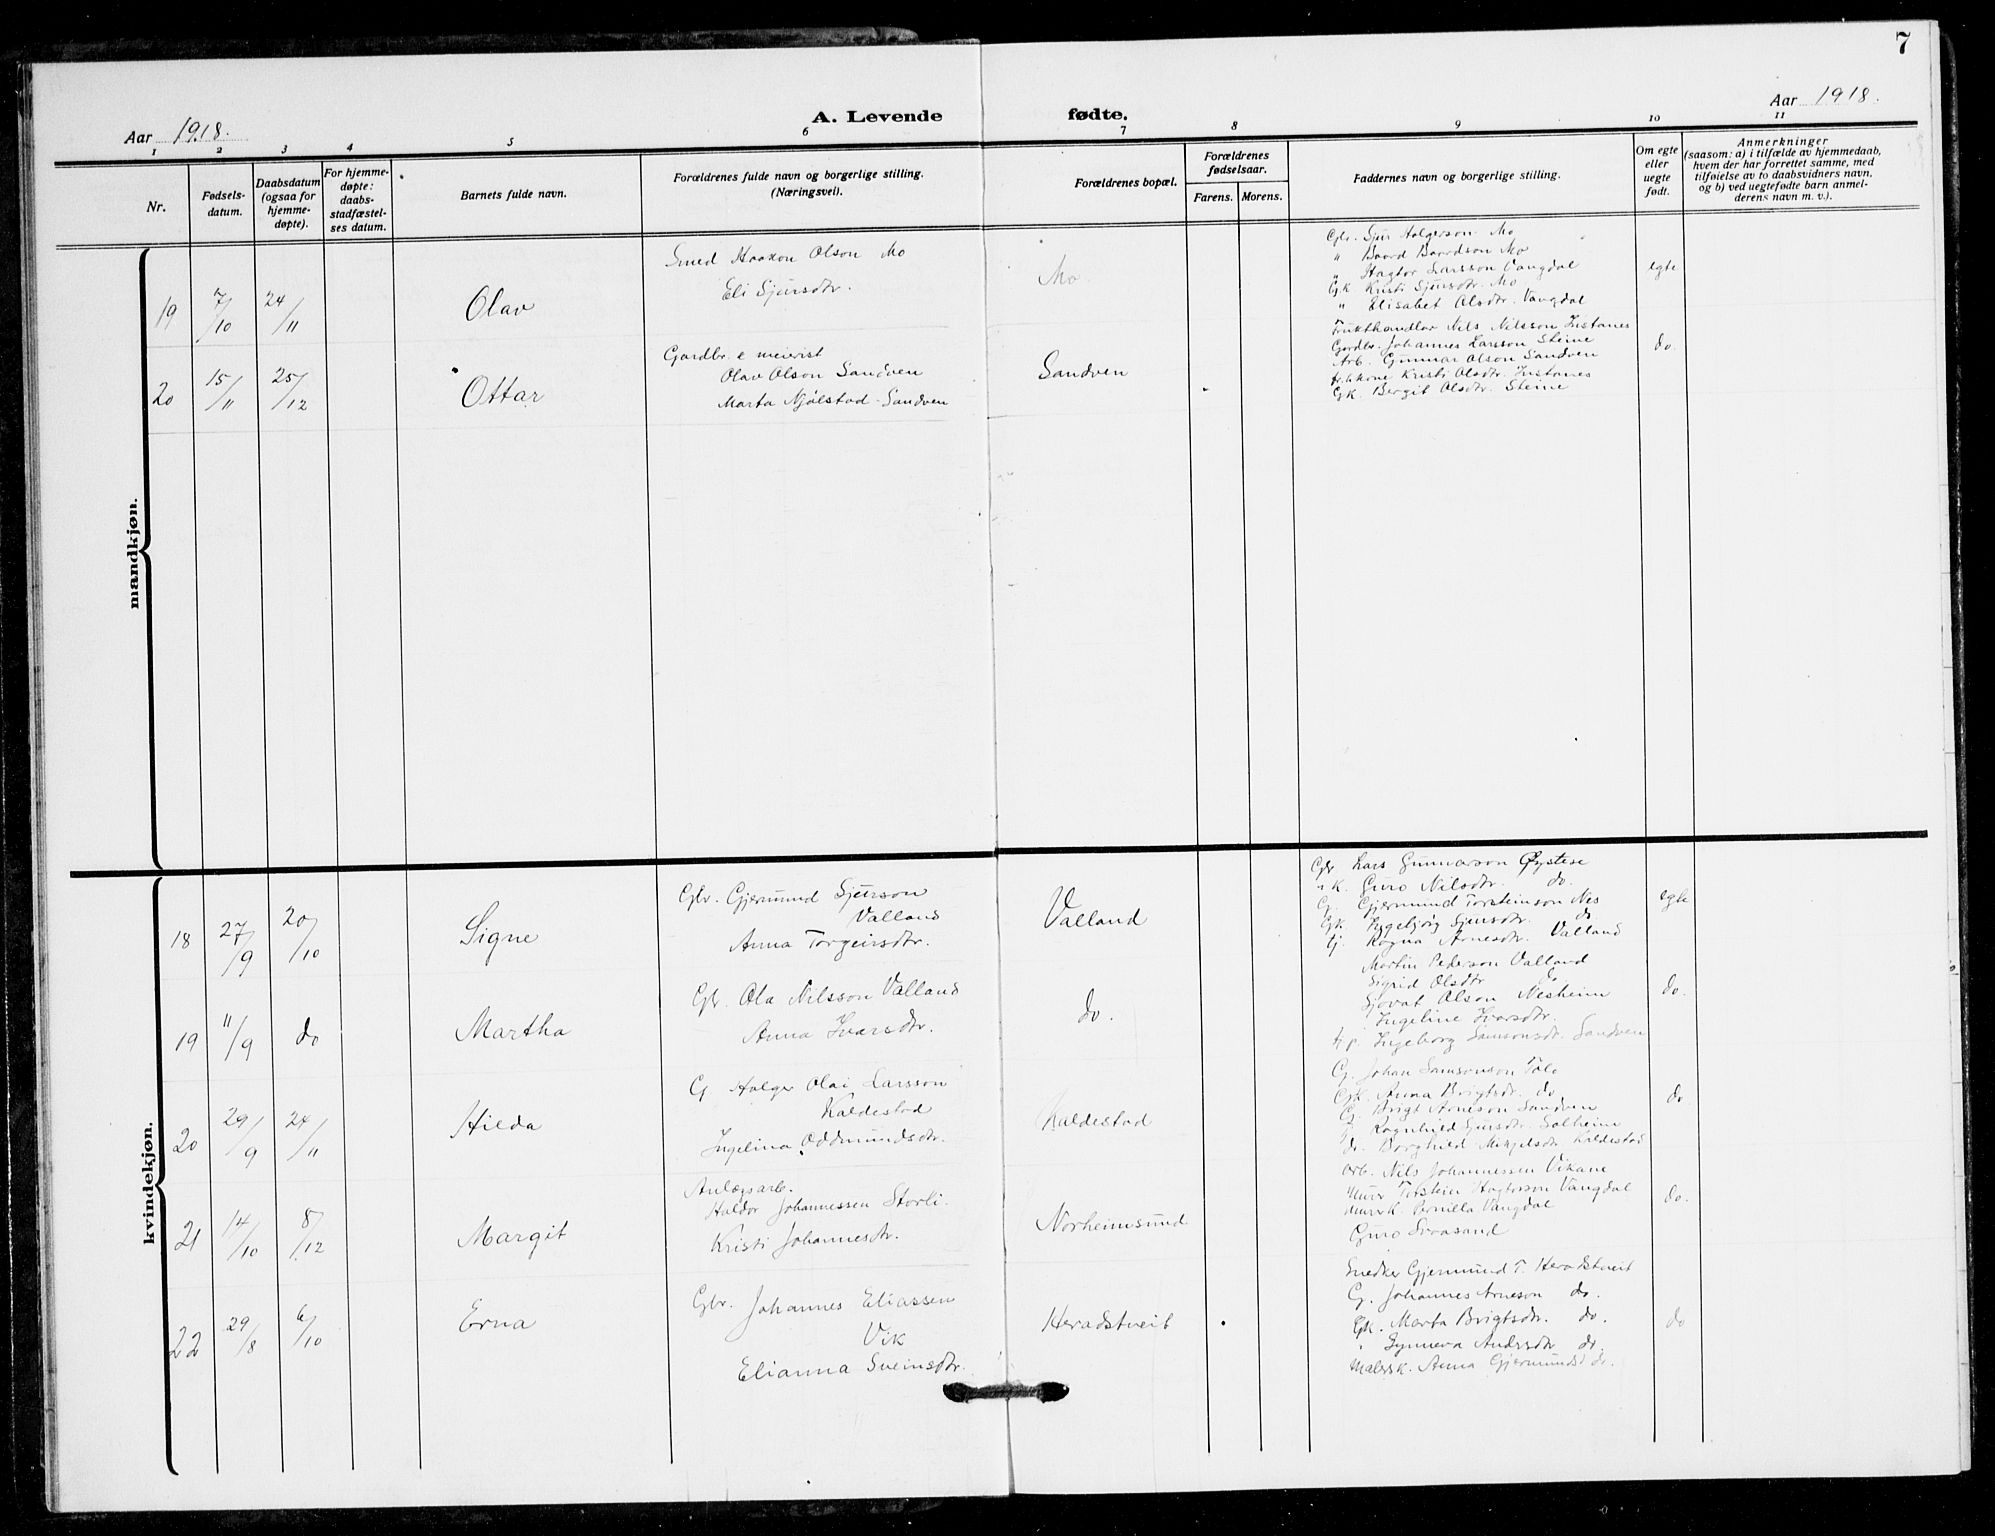 7
Aar 1918.
A. Levende fødte.
Aar 1918.
1 2 3 4 5 6 7 8 9 10 11
Nr.
Fødsels-
datum.
Daabsdatum
(ogsaa for
hjemme-
døpte).
For hjemme-
døpte:
daabs-
stadfæstel-
ses datum.
Barnets fulde navn.
Forældrenes fulde navn og borgerlige stilling.
(Næringsvei).
Forældrenes bopæl.
Forældrenes
fødselsaar.
Farens. Morens.
Faddernes navn og borgerlige stilling.
Om egte
eller
uegte
født.
Anmerkninger
(saasom: a) i tilfælde av hjemmedaab,
hvem der har forrettet samme, med
tilføielse av to daabsvidners navn,
og b) ved uegtefødte barn anmel-
derens navn m. v.).
mandkjøn.
19 7/10 24/11 Olav
Smed Haakon Olson Mo
Eli Sjursdtr.
Mo
Gbr. Sjur Holgerson Mo
" Baard Baardson Mo
" Hagtor Larsson Vangdal
Gk. Kristi Sjursdtr. Mo
" Elisabet Olsdtr. Vangdal
egte
20 15/11 25/12 Ottar
Gardbr. & meierist
Olav Olson Sandven
Marta Mjølstad-Sandven
Sandven
Frukthandlar Nils Nilsson Instanes
Gardbr. Johannes Larsson Steine
Arb. Gunnar Olson Sandven
Kristi Olsdtr. Instanes
Gk. Bergit Olsdtr. Steine
do.
kvindekjøn.
18 27/9 20/10 Signe
Gbr. Gjermund Sjurson
Valland
Anna Torgeirsdtr.
Valland
Gbr Lars Gunnarson Øystese
" k. Guro Nilsdtr. do.
G. Gjermund Torsteinson Nes
Gk. Ingebjørg Sjursdtr. do.
tj. Ragna Arnesdtr. Valland
egte
19 11/9 do Martha
Gbr. Ola Nilsson Valland
Anna Ivarsdtr.
do.
Martin Pederson Valland
Sigrid Olsdtr do
Sjovat Olson Nesheim
Ingeline Ivarsdtr.
Ingeborg Samsonsdtr. Sandven
do.
20 29/9 24/11 Hilda
G Holger Olai Larsson
Kaldestad
Ingelina Oddmundsdtr.
Kaldestad
G. Johan Samsonson Tolo
Gk. Anna Brigtsdtr. do
G. Brigt Arneson Sandven
Ragnhild Sjursdtr. Solheim
Borghild Mikjelsdtr Kaldestad
do
21 14/10 8/12 Margit
Anlægsarb.
Haldor Johannessen Storli.
Kristi Johannesdtr.
Norheimsund
Arb. Nils Johannessen Vikane
Murer Torstein Hagtorson Vangdal
Murerk. Pernilla Vangdal
Guro Svaasand
do.
22 29/8 6/10 Erna
Gbr. Johannes Eliassen
Vik
Elianna Sveinsdtr.
Heradstveit
Snedker Gjermund T. Heradstveit
G. Johannes Arneson do.
Gk. Marta Brigtsdtr. do.
" Synneva Andersdtr do.
Malersk. Anna Gjermundsd do.
do